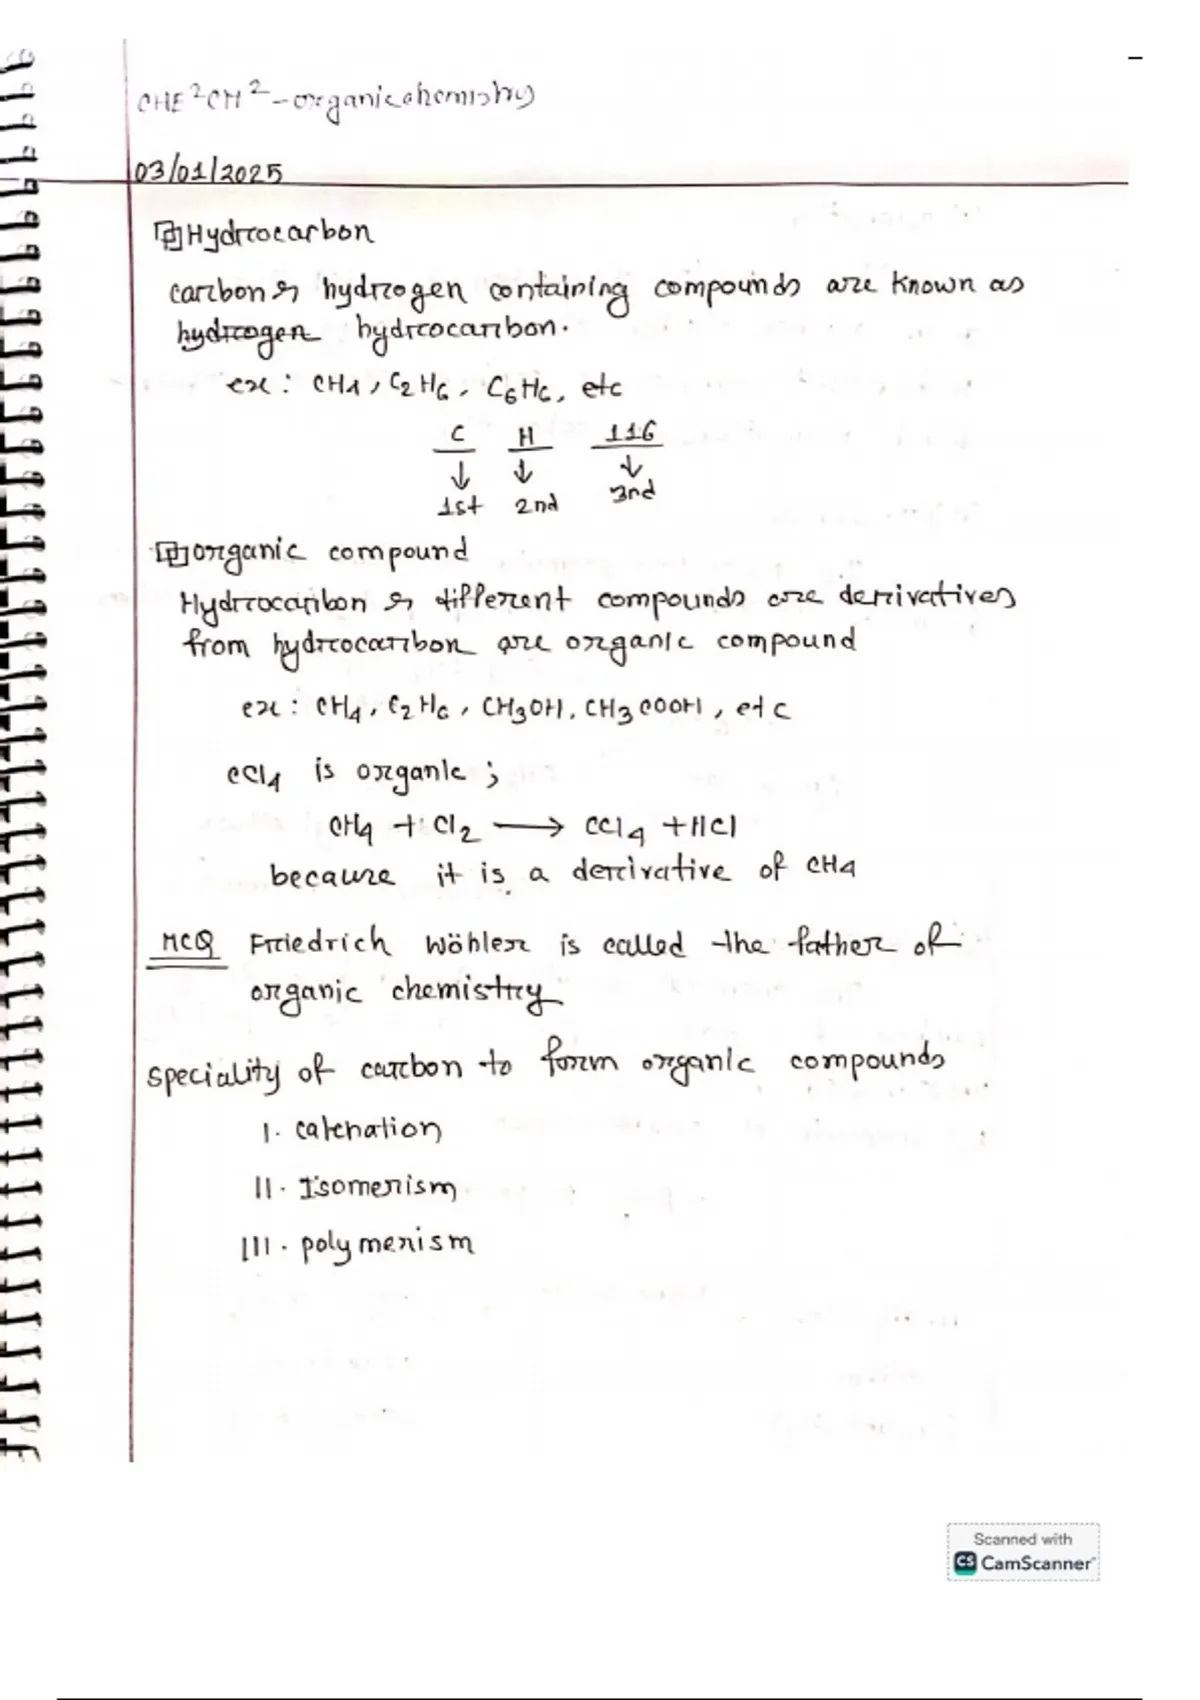 CHE²CH²-organicchemistry
03/01/2025
Hydrocarbon
carbon & hydrogen containing compounds are known as
hydrogen hydrocarbon.
ex: CH4, C2H6, C6H6, etc
C H 116
↓ ↓ ↓
1st 2nd 3nd
organic compound
Hydrocarbon & different compounds are derivatives
from hydrocarbon are organic compound
ex: CH4, C2H6, CH3OH, CH3COOH, etc
CCl4 is organic;
CH4 + Cl2 → CCl4 + HCl
because it is a derivative of CH4
MCQ Friedrich Wöhler is called the father of
organic chemistry
speciality of carbon to form organic compounds
I. catenation
II. Isomerism
III. polymerism
Scanned with
CS CamScanner